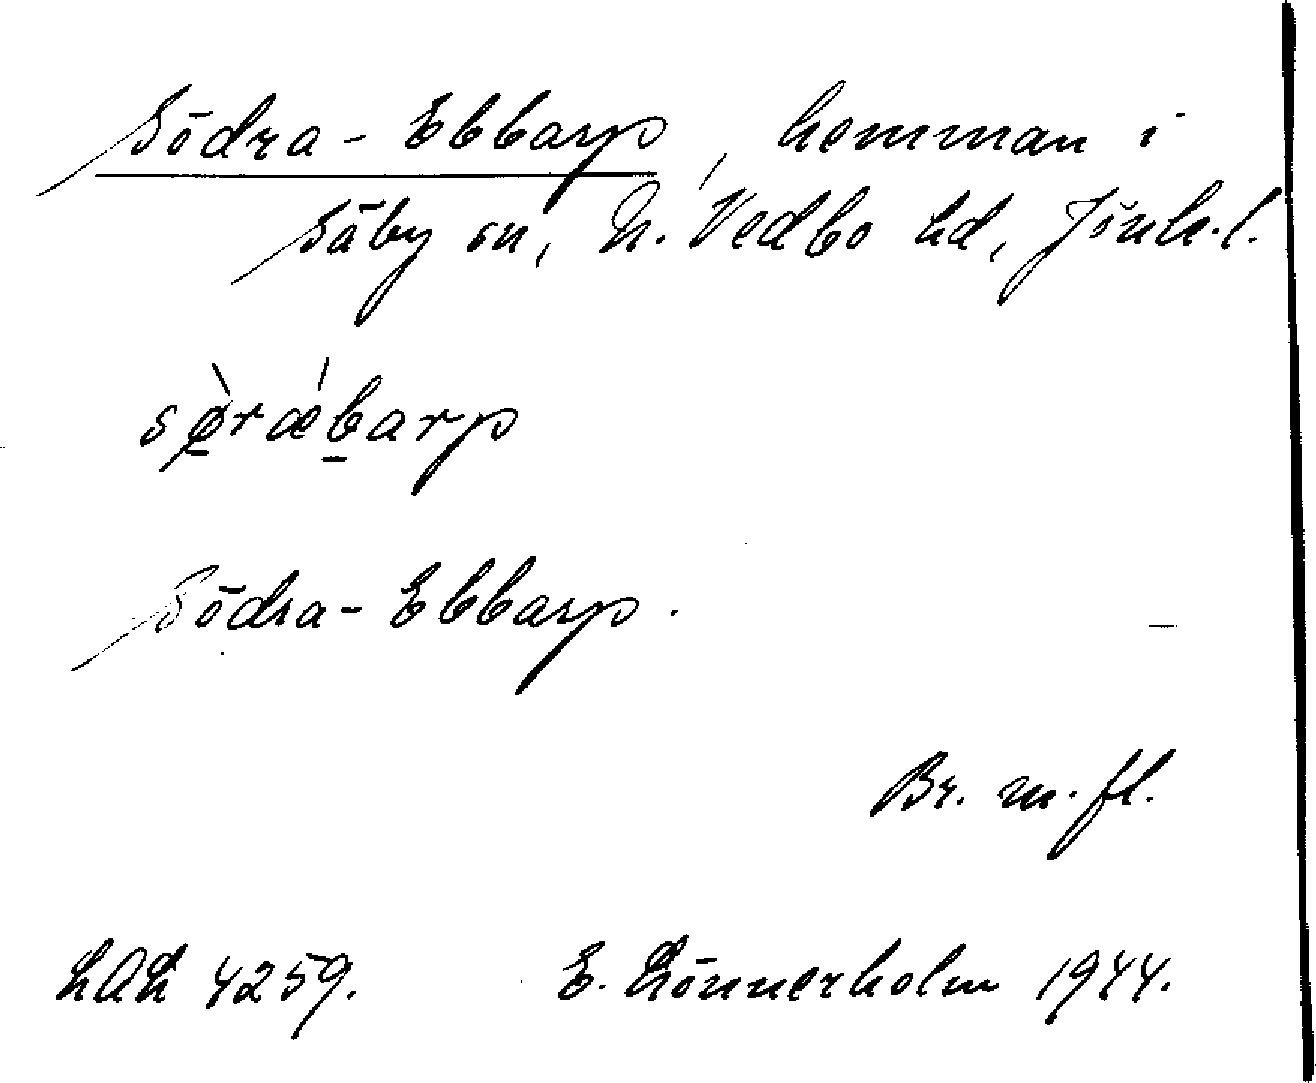 Södra-Ebbarp, hemman i
Säby sn, N. Vedbo hd, Jönk.l.
sø̱̀rǽḇarp
Södra-Ebbarp.
Br. m. fl.
LAL 4259. E. Lönnerholm 1944.